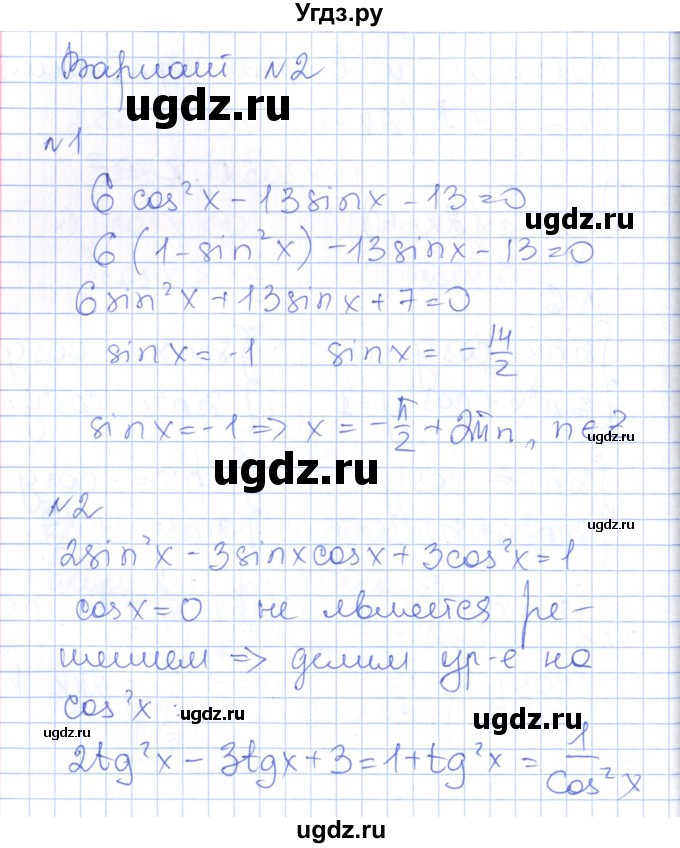 Угдз.ру
Вариант №2
ugdz.ru
№1
6 cos²x - 13sinx - 13 = 0
ugdz.ru
6 (1 - sin²x) - 13sinx - 13 = 0
6 sin²x + 13sinx + 7 = 0
sinx = -1 sinx = -14/2
sinx = -1 => x = -π/2 + 2πn, n∈Z
ugdz.ru
ugdz.ru
№2
ugdz.ru
2sin²x - 3sinxcosx + 3cos²x = 1
cosx = 0 не является ре-
шением => делим ур-е на
cos²x
ugdz.ru
ugdz.ru
ugdz.ru
2tg²x - 3tgx + 3 = 1 + tg²x = 1/cos²x
ugdz.ru